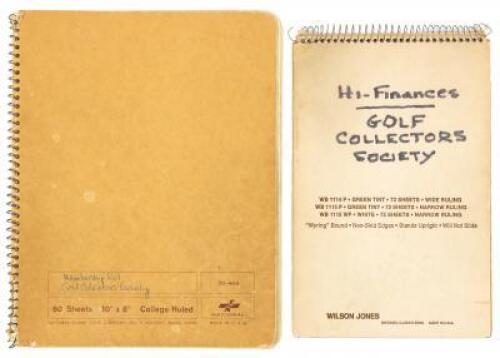 Membership List
Golf Collectors Society
80 Sheets 10" x 8" College Ruled
NATIONAL
HI-FINANCES
GOLF
COLLECTORS
SOCIETY
WB 1114 P • GREEN TINT • 72 SHEETS • WIDE RULING
WB 1115 P • GREEN TINT • 72 SHEETS • NARROW RULING
WB 1115 WP • WHITE • 72 SHEETS • NARROW RULING
"Wyring" Bound • Non-Skid Edges • Stands Upright • Will Not Slide
WILSON JONES